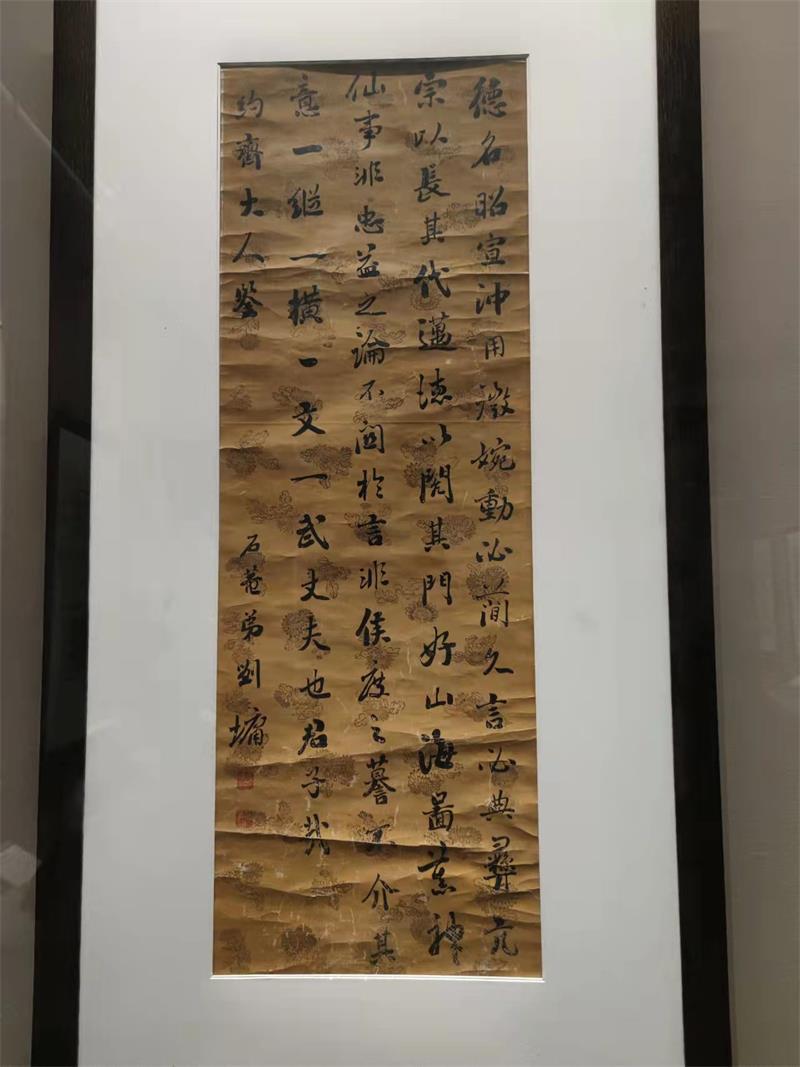 德名昭宣沖用徽婉動必簡久言必典彝亢
宗以長其代邁德以閎其門好山海圖慕神
仙事非忠益之論不關於言非侯度之謩不介其
意一縱一橫一文一武丈夫也君子哉
約齋大人鑒
石菴弟劉墉